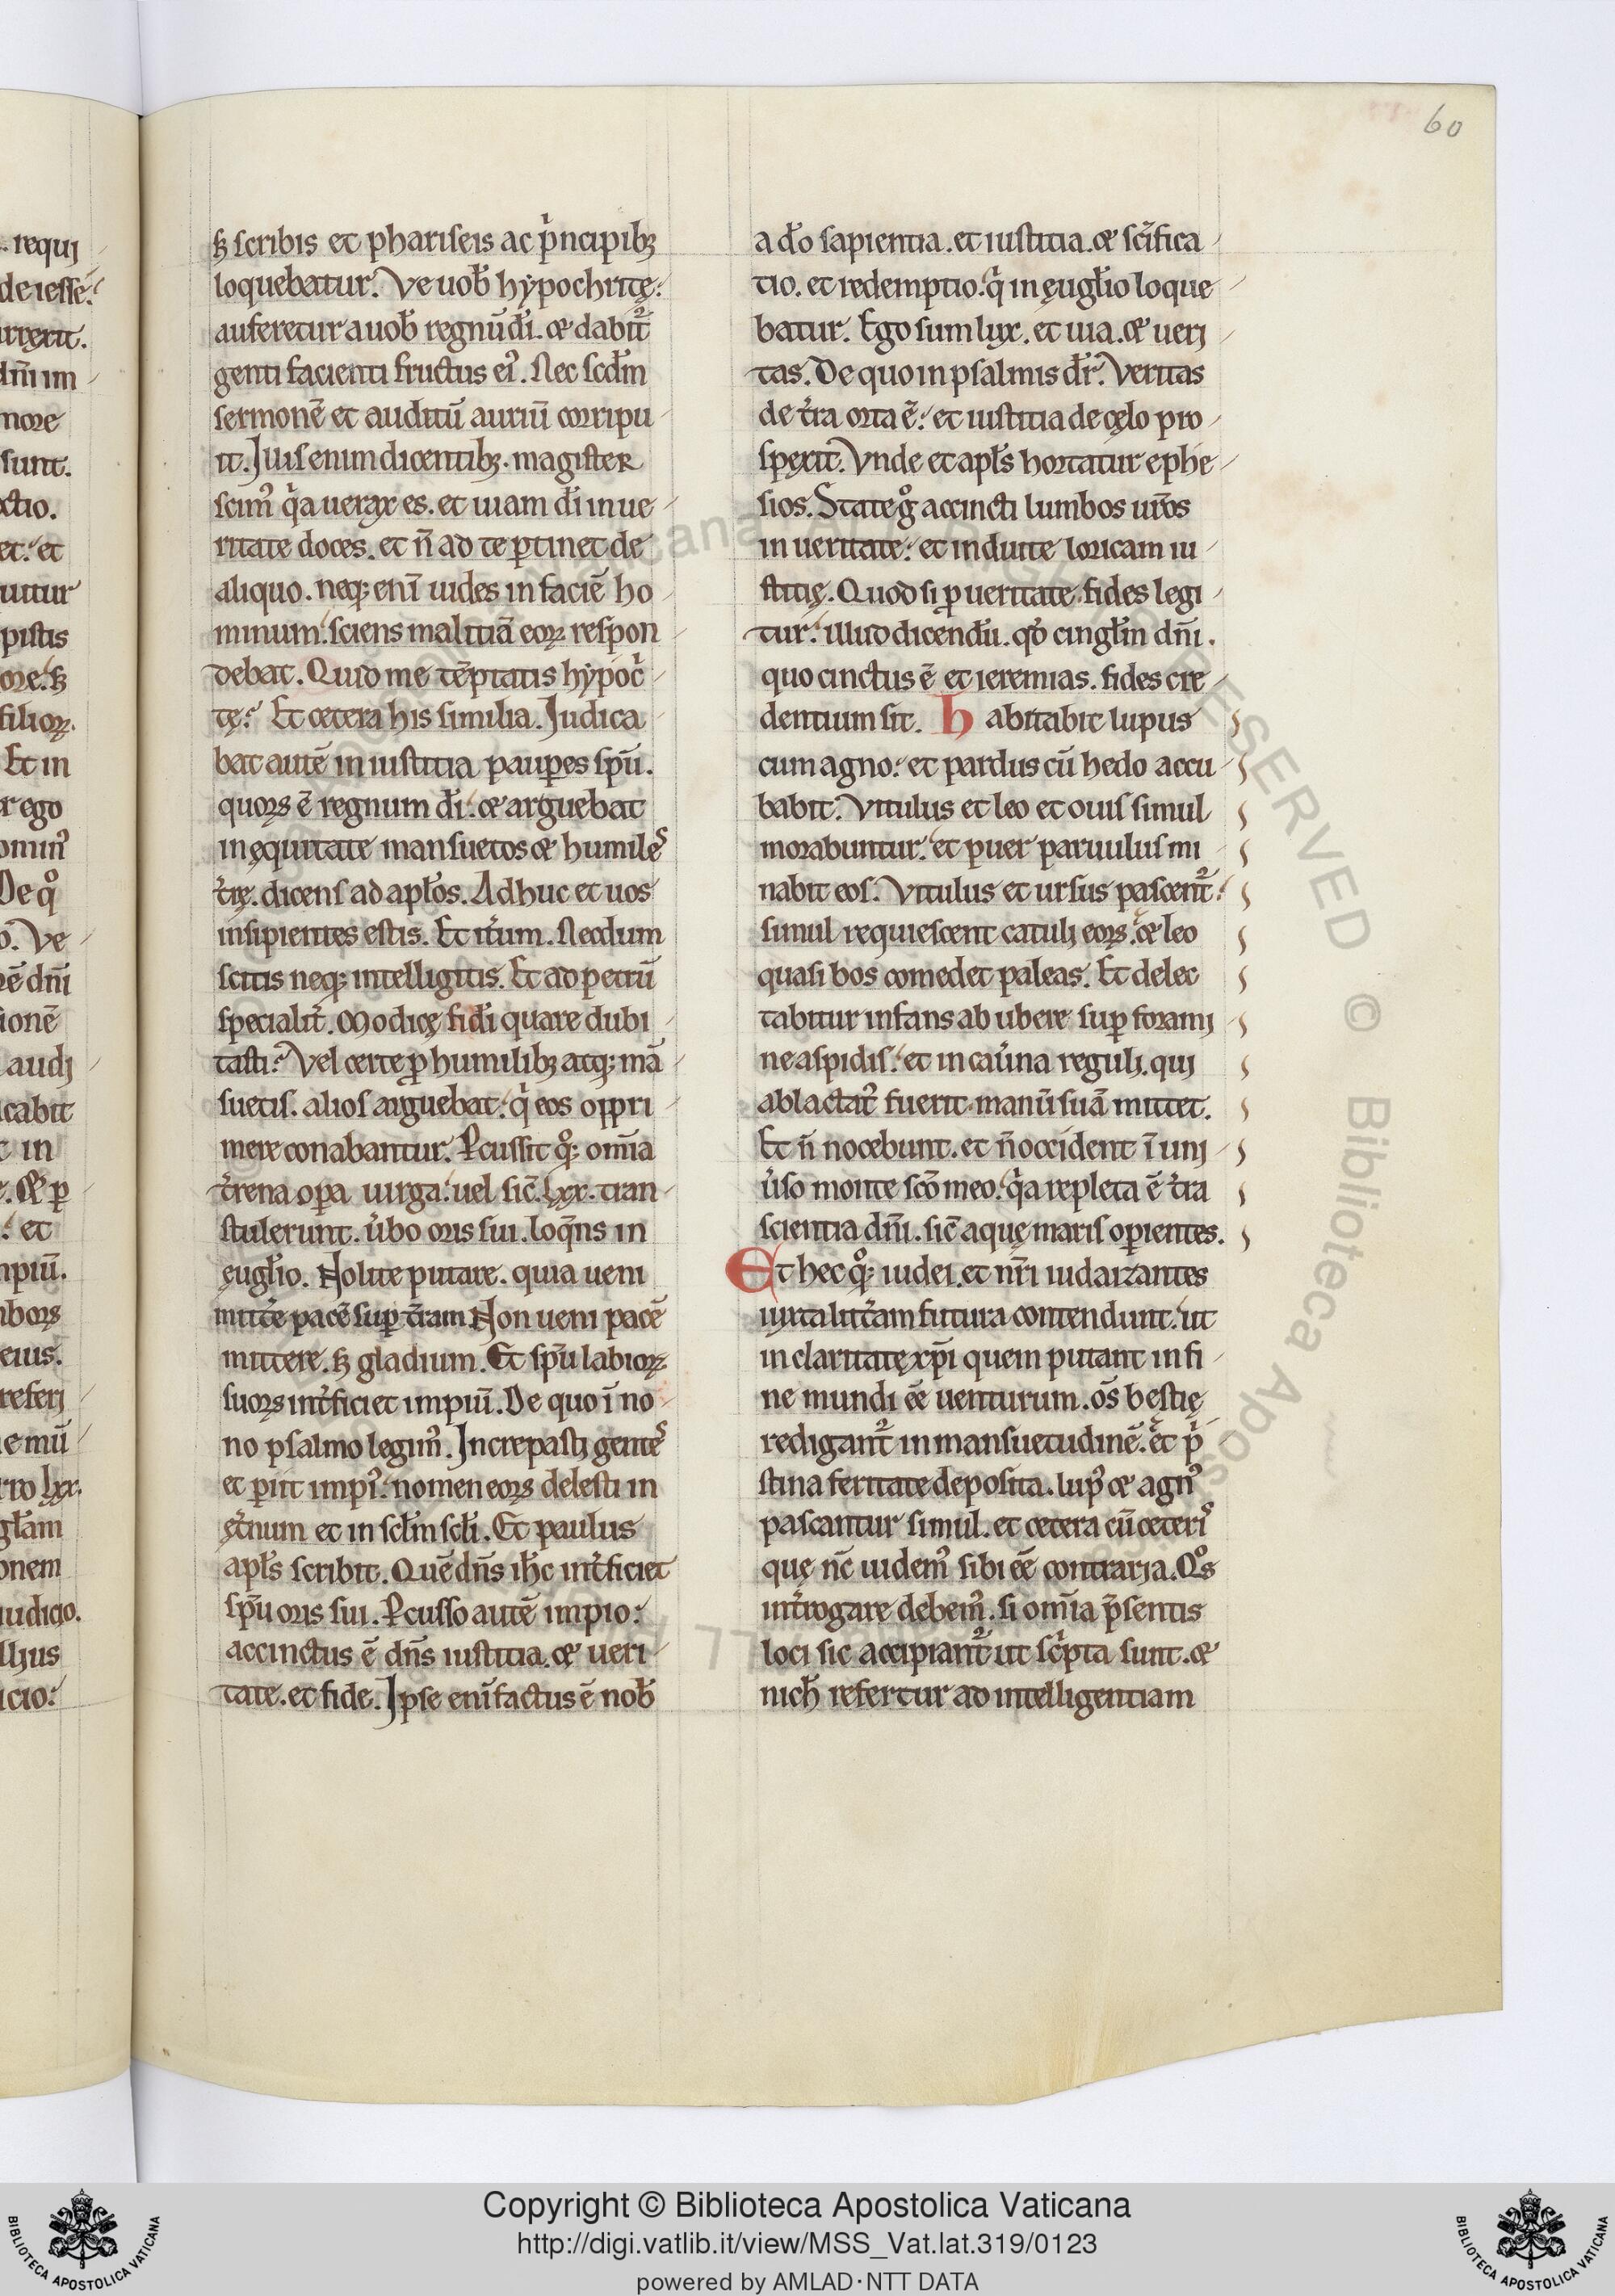 60
ꝫ scribis et phariseis ac p̍ncipibꝫ
loquebatur. Ve uob̅ hypochritę:
auferetur a uob̅ regnū dī. & dabit̄᷑
genti facienti fructus eiꝰ. Nec scd̅m
sermonē et auditū auriū corripu
it. Juis enim dicentibꝫ. magister
scimꝰ q̍a uerax es. et uiam dī in ue
ritate doces. et n̄ ad te ꝑtinet de
aliquo. neqꝫ eni̅ uides in faciē ho
minum: sciens malitiā eoꝝ respon
debat. Quid me tēptatis hypoc̍
tę? Et cetera his similia. Judica
bat autē in iustitia pauꝑes spū.
quoꝝ ē regnum dī. & arguebat
in ęquitate mansuetos & humiles
t̍rę. dicens ad apl̅os. Adhuc et uos
insipientes estis. Et it̍um. Necdum
scitis neqꝫ intelligitis. Et ad petrū
specialit̍. Modicę fidi̅ quare dubi
tasti? Vel certe ꝓ humilibꝫ atqꝫ mā
suetis. alios arguebat: q̍ eos oppri
mere conabantur. ꝑcussit qͦꝫ om̅ia
t̍rena oꝑa uirga: uel sic̅. lxx. tran
stulerunt. u̍bo oris sui. loq̅ns in
ęugl̅io. Nolite putare. quia ueni
mitt̍e pacē suꝑ t̍ram Non ueni pacē
mittere. ꝫ gladium. Et spū labioꝝ
suoꝝ int̍ficiet impiū. De quo ī no
no psalmo legimꝰ. Increpasti gentes
et ꝑiit impiꝰ: nomen eoꝝ delesti in
ęt̍num et in scl̅m scl̅i. Et paulus
apl̅s scribit. Quē dn̅s ih̅c int̍ficiet
spū oris sui. ꝑcusso autē impio:
accinctus ē dn̅s iustitia. & ueri
tate. et fide. Ipse eni̅ factus ē nob̅
a do̅ sapientia. et iustitia. & sc̅ifica
tio. et redemptio: q̍ in ęugl̅io loque
batur. Ego sum lux. et uia. & ueri
tas. De quo in psalmis dr̅. Veritas
de t̍ra orta ē: et iustitia de cęlo pro
spexit. Vnde et apl̅s hortatur ephe
sios. State gͦ accincti lumbos ur̅os
in ueritate: et induite loricam iu
stitię. Quod si ꝓ ueritate fides legi
tur: illud dicendū. qd̅ cingl̅m dn̅i.
quo cinctus ē et ieremias. fides cre
dentium sit. Habitabit lupus
cum agno: et pardus cū hedo accu
babit. Vitulus et leo et ouis simul
morabuntur: et puer paruulus mi
nabit eos. Vitulus et ursus pascent᷑:
simul requiescent catuli eoꝝ: & leo
quasi bos comedet paleas. Et delec
tabitur infans ab ubere suꝑ forami
ne aspidis: et in cau̍na reguli. qui
ablactatꝰ fuerit. manū suā mittet.
Et n̄ nocebunt. et n̄ occident ī uni
u̍so monte sc̅o meo. q̍a repleta ē t̍ra
scientia dn̅i. sic̅ aquę maris oꝑientes.
Et hec qͦꝫ iudei. et nr̅i iudaizantes
iuxta litt̍am futura contendunt: ut
in claritate xp̅i quem putant in fi
ne mundi ēe uenturum. om̅s bestię
redigant᷑ in mansuetudinē. et p̍
stina feritate deposita. lupꝰ & agnꝰ
pascantur simul. et cetera cū ceteris
quę nc̅ uidemꝰ sibi ēe contraria. Qͦs
int̍rogare debemꝰ. si om̅ia p̅sentis
loci sic accipiant᷑ ut sc̍pta sunt. &
nich̅ refertur ad intelligentiam
Copyright © Biblioteca Apostolica Vaticana
http://digi.vatlib.it/view/MSS_Vat.lat.319/0123
powered by AMLAD·NTT DATA
BIBLIOTECA APOSTOLICA VATICANA
BIBLIOTECA APOSTOLICA VATICANA